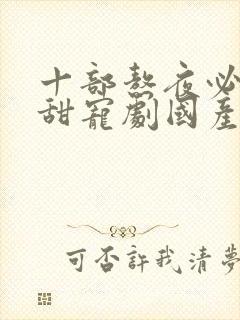 十部熬夜必
甜寵劇國產
可否許我清夢